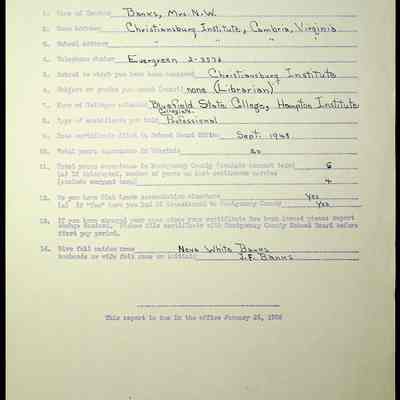 1. Name of Teacher Banks, Mrs. N.W.
2. Home Address Christiansburg Institute, Cambria, Virginia
3. School address " " "
4. Telephone number Evergreen 2-3572
5. School to which you have been assigned Christiansburg Institute
6. Subject or grades you teach none (Librarian)
7. Name of Colleges attended Bluefield State College, Hampton Institute
Collegiate
8. Type of certificate you hold Professional
9. Date certificate filed in School Board Office Sept. 1948
10. Total years experience in Virginia
11. Total years experience in Montgomery County (exclude current term) 6
(a) If interrupted, number of years of last continuous service
(exclude current term) 4
12. Do you have Sick Leave accumulation elsewhere Yes
(a) If "Yes" have you had it transferred to Montgomery County Yes
13. If you have changed your name since your certificate has been issued please report
change desired. Please file certificate with Montgomery County School Board before
first pay period.
14. Give full maiden name Neva White Banks
husbands full name or initials J.F. Banks
This report is due in the office January 26, 1956